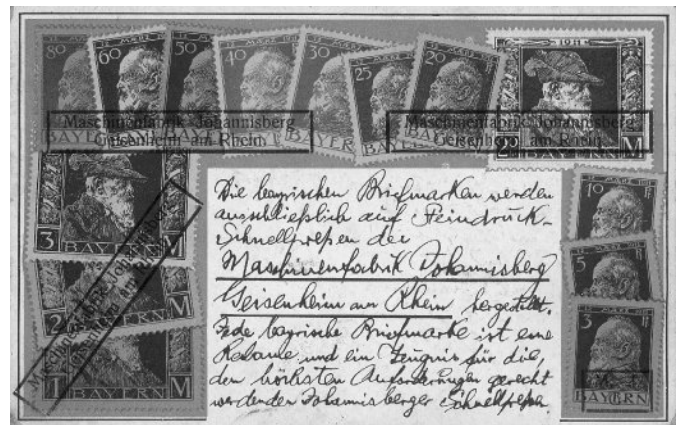 80
60
50
40
30
25
20
1911
Maschinenfabrik Johannisberg
Geisenheim am Rhein.
Maschinenfabrik Johannisberg
Geisenheim am Rhein.
BAYERN
BAYERN
M
3
BAYERN
M
2
BAYERN
M
1
BAYERN
M
Maschinenfabrik Johannisberg
Geisenheim am Rhein.
10
5
3
BAYERN
Die bayrischen Briefmarken werden
ausschließlich auf Steindruck-
Schnellpressen der
Maschinenfabrik Johannisberg
Geisenheim am Rhein hergestellt.
Jede bayrische Briefmarke ist eine
Reklame und ein Zeugnis für die,
den höchsten Anforderungen gerecht
werdenden Johannisberger Schnellpressen.